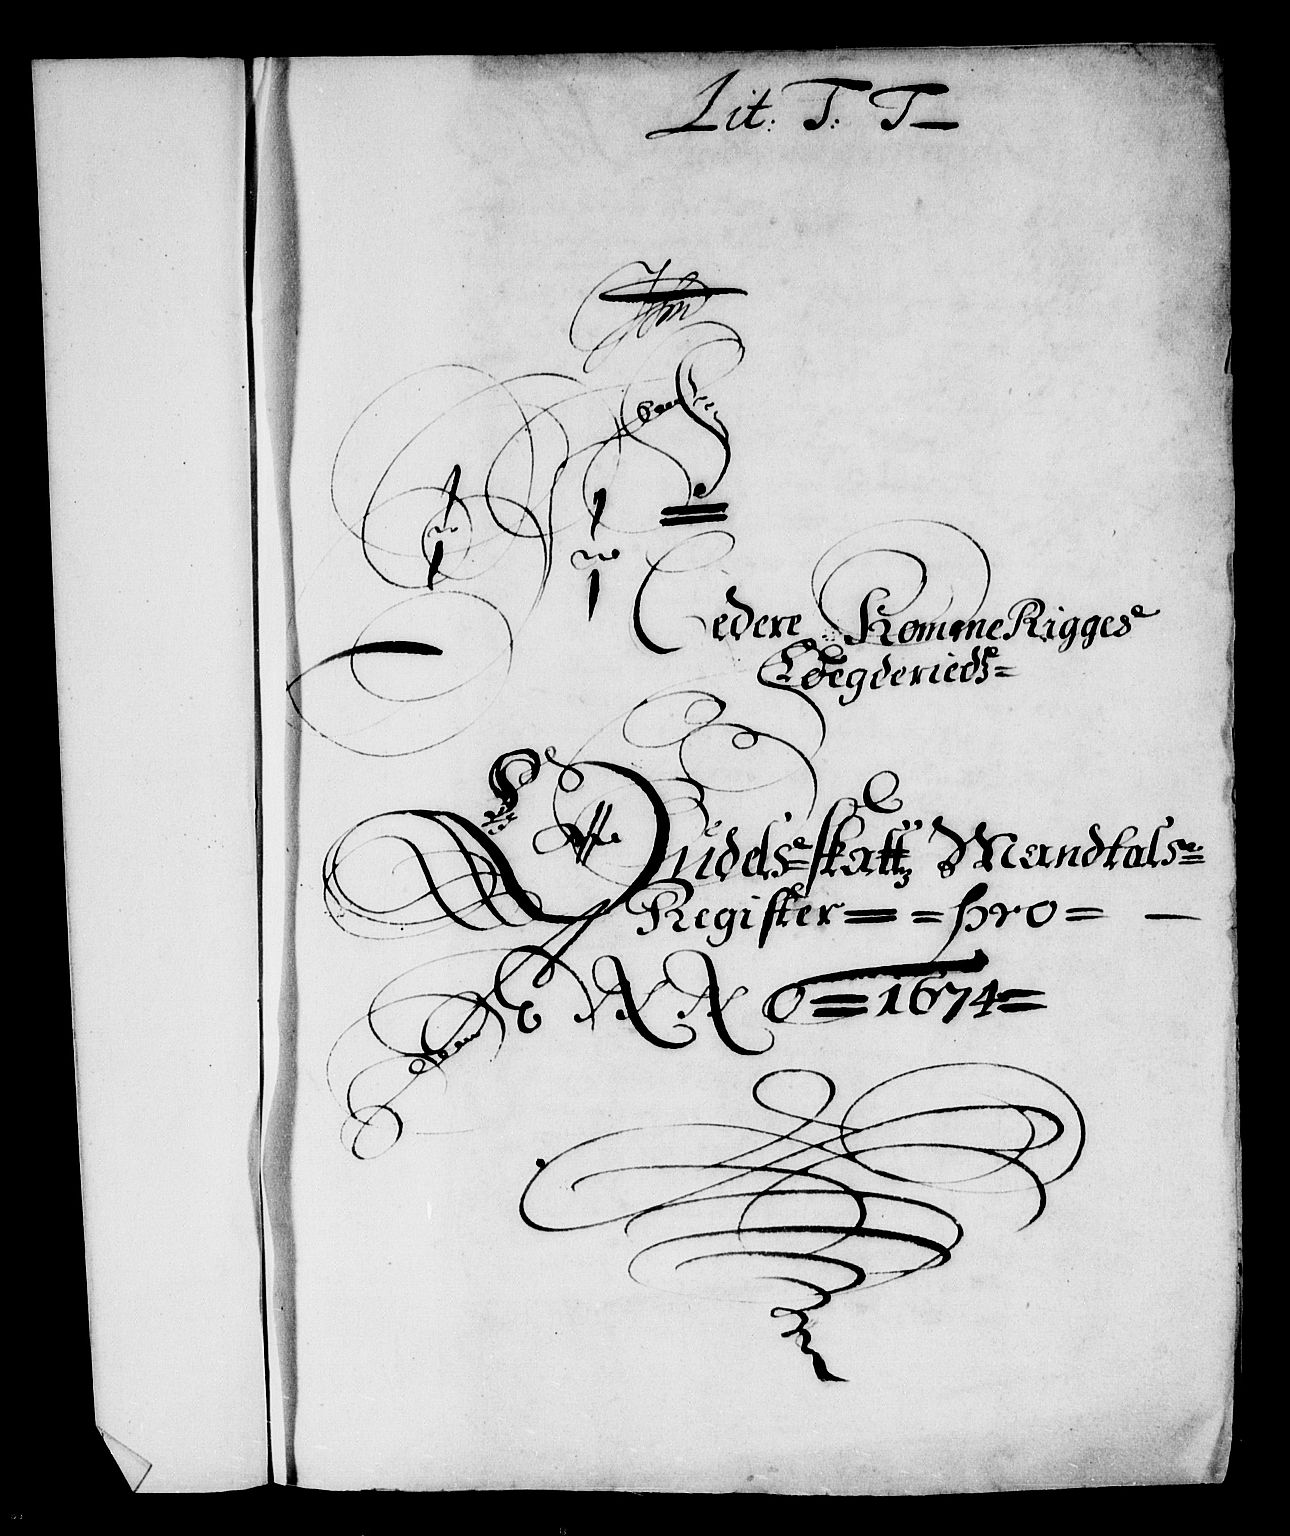 Lit: T: T
Nedere Romme Rigges
Fogderieds
Qudels skatz Mandtals
Register pro
ANNO 1674